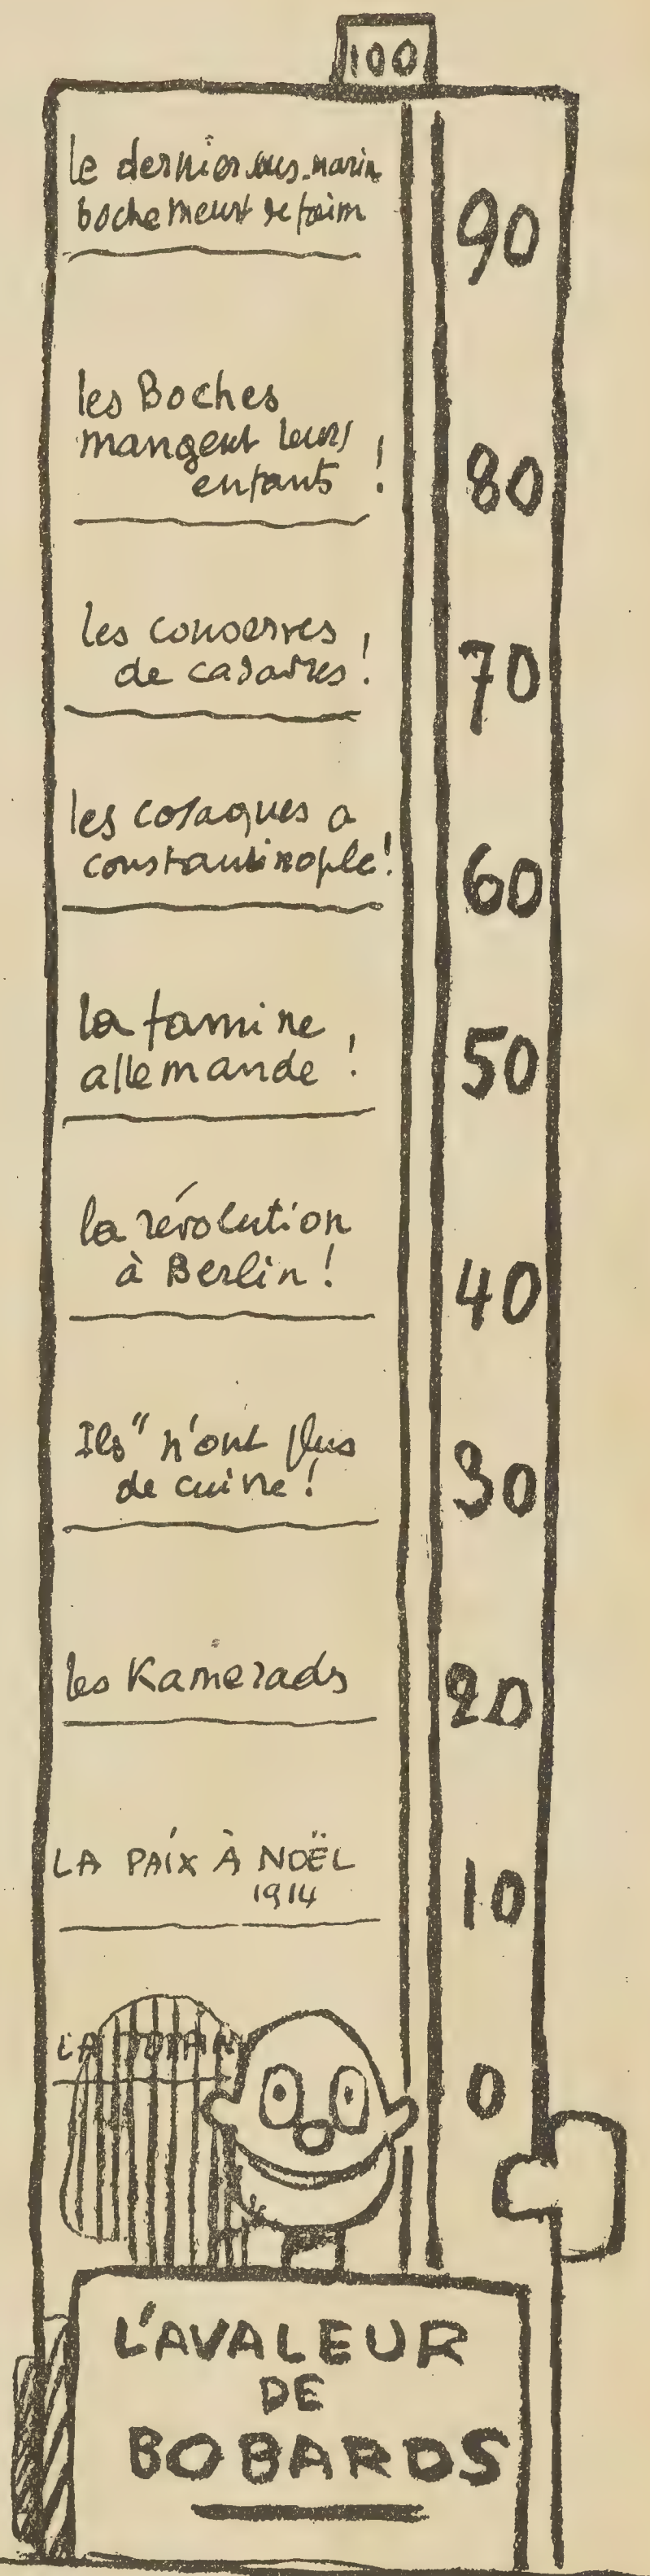 100
le dernier sous-marin
boche meurt de faim
90
les Boches
mangent leurs
enfants !
80
les conserves
de cadavres !
70
les cosaques a
constantinople !
60
la famine
allemande !
50
la révolution
à Berlin !
40
Ils" n'ont plus
de cuivre !
30
les Kamerads
20
LA PAIX À NOËL
1914
10
LA
0
L'AVALEUR
DE
BOBARDS